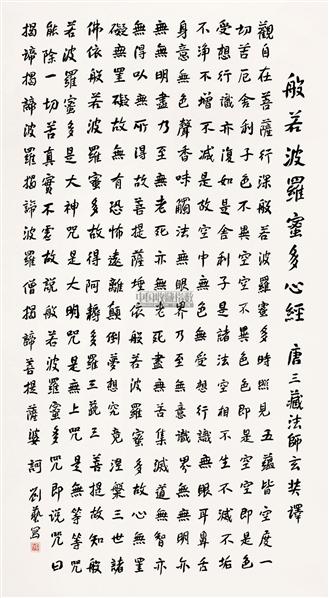 般若波羅蜜多心經 唐三藏法師玄奘譯
觀自在菩薩行深般若波羅蜜多時照見五蘊皆空度一
切苦厄舍利子色不異空空不異色色即是空空即是色
受想行識亦復如是舍利子是諸法空相不生不滅不垢
不淨不增不減是故空中無色無受想行識無眼耳鼻舌
身意無色聲香味觸法無眼界乃至無意識界無無明亦
無無明盡乃至無老死亦無老死盡無苦集滅道無智亦
無得以無所得故菩提薩埵依般若波羅蜜多故心無罣
礙無罣礙故無有恐怖遠離顛倒夢想究竟涅槃三世諸
佛依般若波羅蜜多故得阿耨多羅三藐三菩提故知般
若波羅蜜多是大神咒是大明咒是無上咒是無等等咒
能除一切苦真實不虛故說般若波羅蜜多咒即說咒曰
揭諦揭諦波羅揭諦波羅僧揭諦菩提薩婆訶 劉藝寫